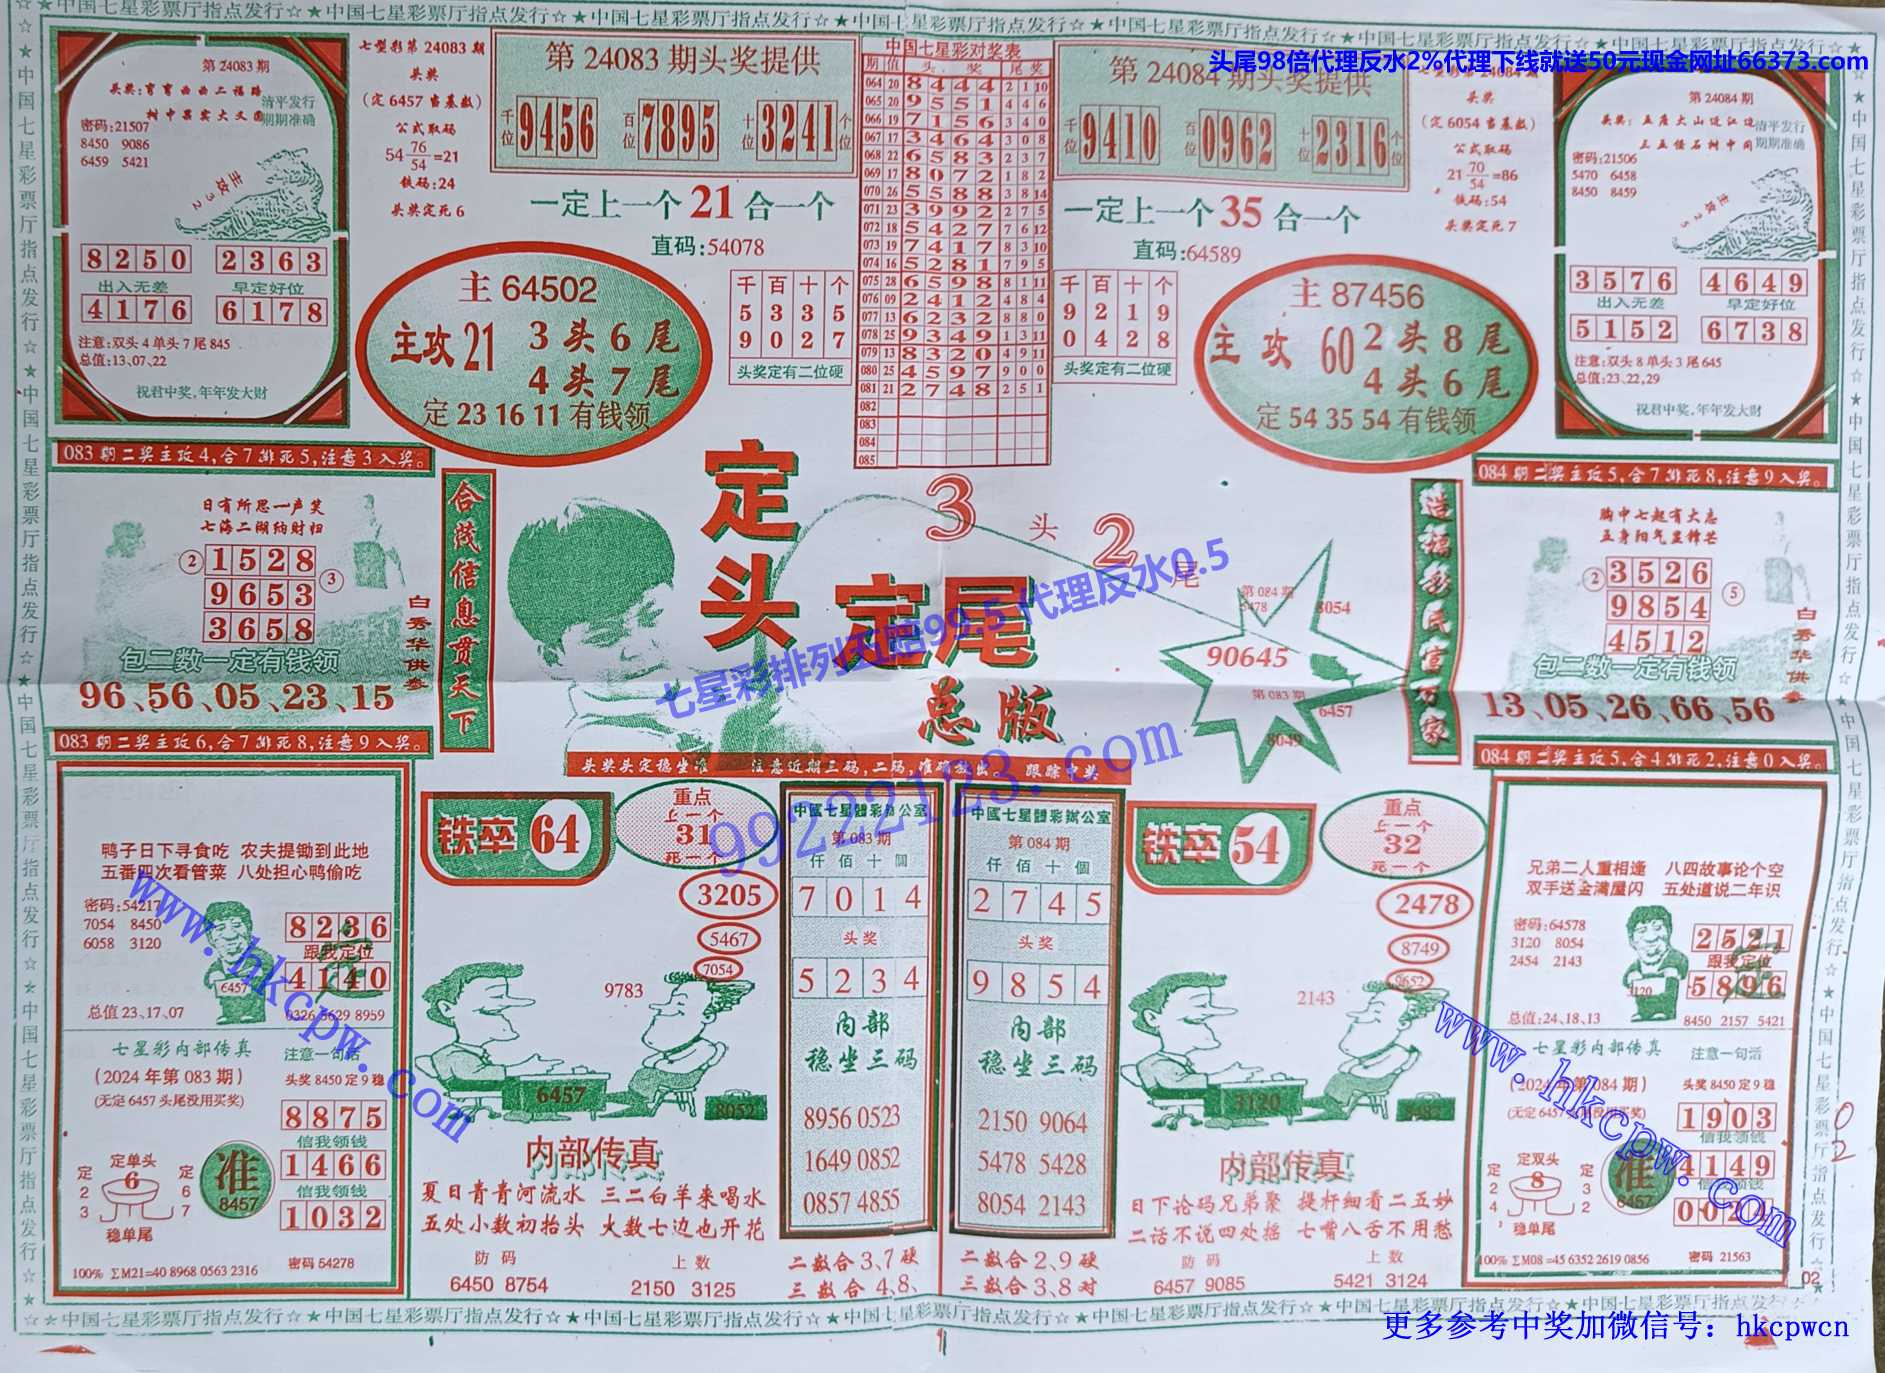 ☆★中国七星彩票厅指点发行☆★中国七星彩票厅指点发行☆★中国七星彩票厅指点发行☆
头尾98倍代理反水2%代理下线就送50元现金网址66373.com
第24083期
头奖:弯弯曲曲二福路
树中果实大又圆
清平发行
期期准确
密码:21507
8450 9086
6459 5421
主攻32
8250 2363
出入无差 早定好位
4176 6178
注意:双头4单头7尾845
总值:13,07,22
祝君中奖,年年发大财
七型彩第24083期
头奖
(定6457当基数)
公式取码
54 76/54 =21
铁码:24
头奖定死6
第24083期头奖提供
千位 9456 百位 7895 十位 3241 个位
一定上一个21合一个
直码:54078
主64502
主攻21 3头6尾
4头7尾
定 23 16 11 有钱领
千百十个
5335
9027
头奖定有二位硬
中国七星彩对奖表
期 值 头 奖 尾奖
064 20 8444 2 1 10
065 20 9551 4 4 6
066 19 7156 3 4 0
067 17 3464 3 0 8
068 22 6583 2 3 7
069 17 8072 1 8 2
070 26 5588 3 8 14
071 23 3992 2 7 5
072 18 5427 7 6 12
073 19 7417 8 3 10
074 16 5281 7 9 5
075 28 6598 8 1 11
076 09 2412 4 8 4
077 13 6232 8 8 0
078 25 9349 1 3 11
079 13 8320 4 9 11
080 25 4597 9 0 0
081 21 2748 2 5 1
082
083
084
085
第24084期头奖提供
千位 9410 百位 0962 十位 2316 个位
一定上一个35合一个
直码:64589
千百十个
9219
0428
头奖定有二位硬
主87456
主攻60 2头8尾
4头6尾
定 54 35 54 有钱领
头奖
(定6054当基数)
公式取码
21 70/54 =86
铁码:54
头奖定死7
第24084期
头奖:五座大山边江边
三五怪石树中间
清平发行
期期准确
密码:21506
5470 6458
8450 8459
主攻25
3576 4649
出入无差 早定好位
5152 6738
注意:双头8单头3尾645
总值:23,22,29
祝君中奖,年年发大财
083期二奖主攻4,合7排死5,注意3入奖。
日有所思一声笑
七海二湖纳财归
② 1528 ③
9653
3658
包二数一定有钱领
96、56、05、23、15
白秀华供参
083期二奖主攻6,合7排死8,注意9入奖。
合茂信息贯天下
定头
定尾
总版
3头2尾
七星彩排列五赔99.5代理反水0.5
99222123.com
头奖头定稳坐准 注意近期三码,二码,准确放出。 跟踪中奖
第084期
5478 8054
90645
第083期
6457
8049
造福彩民宣万家
084期二奖主攻5,合7排死8,注意9入奖。
胸中七起有大志
五身阳气显锋芒
② 3526 ⑤
9854
4512
包二数一定有钱领
13、05、26、66、56
白秀华供参
084期二奖主攻5,合4排死2,注意0入奖。
鸭子日下寻食吃 农夫提锄到此地
五番四次看管菜 八处担心鸭偷吃
密码:54217
7054 8450
6058 3120
6457
8236
跟我定位
4140
总值23、17、07
0326 5629 8959
七星彩内部传真 注意一句活
(2024年第083期) 头奖8450定9稳
(无定6457头尾没用买奖)
8875
信我领钱
1466
信我领钱
1032
定单头
定23 6 定67
稳单尾
准
8457
100% ΣM21=40 8968 0563 2316 密码54278
www.hkcpw.com
铁卒64
重点
上一个
31
死一个
3205
5467
7054
9783
6457
8052
内部传真
夏日青青河流水 三二白羊来喝水
五处小数初抬头 大数七边也开花
防码 上数
6450 8754 2150 3125
中國七星體彩辦公室
第083期
仟佰十個
7014
头奖
5234
内部
稳坐三码
8956 0523
1649 0852
0857 4855
二数合3、7硬
三数合4、8、
中國七星體彩辦公室
第084期
仟佰十個
2745
头奖
9854
内部
稳坐三码
2150 9064
5478 5428
8054 2143
二数合2、9硬
三数合3、8对
铁卒54
重点
上一个
32
死一个
2478
8749
9652
2143
3120
内部传真
日下论码兄弟聚 提杆细看二五妙
二话不说四处摇 七嘴八舌不用愁
防码 上数
6457 9085 5421 3124
兄弟二人重相逢 八四故事论个空
双手送金满屋闪 五处道说二年识
密码:64578
3120 8054
2454 2143
3120
2521
跟我定位
5896
总值:24、18、13
8450 2157 5421
七星彩内部传真 注意一句活
(2024年第084期) 头奖8450定9稳
1903
信我领钱
4149
信我领钱
0024
定双头
定24 8 定32
稳单尾
准
6457
100% ΣM08=45 6352 2619 0856 密码21563
www.hkcpw.com
02
02
☆★中国七星彩票厅指点发行☆★中国七星彩票厅指点发行☆★中国七星彩票厅指点发行☆
更多参考中奖加微信号：hkcpwcn